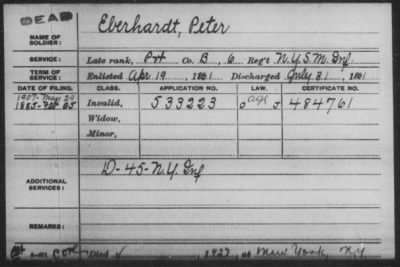 DEAD
Eberhardt, Peter
NAME OF SOLDIER:
SERVICE: Late rank, Pvt Co. B, 6 Reg't N.Y.S.M. Inf.
TERM OF SERVICE: Enlisted Apr 19, 1861 Discharged July 31, 1861
DATE OF FILING. CLASS. APPLICATION NO. LAW. CERTIFICATE NO.
1907-May 29
1885- Invalid, 533223 age 484761
Widow,
Minor,
ADDITIONAL SERVICES: D-45-N.Y. Inf
REMARKS:
Died 1927, at New York, NY